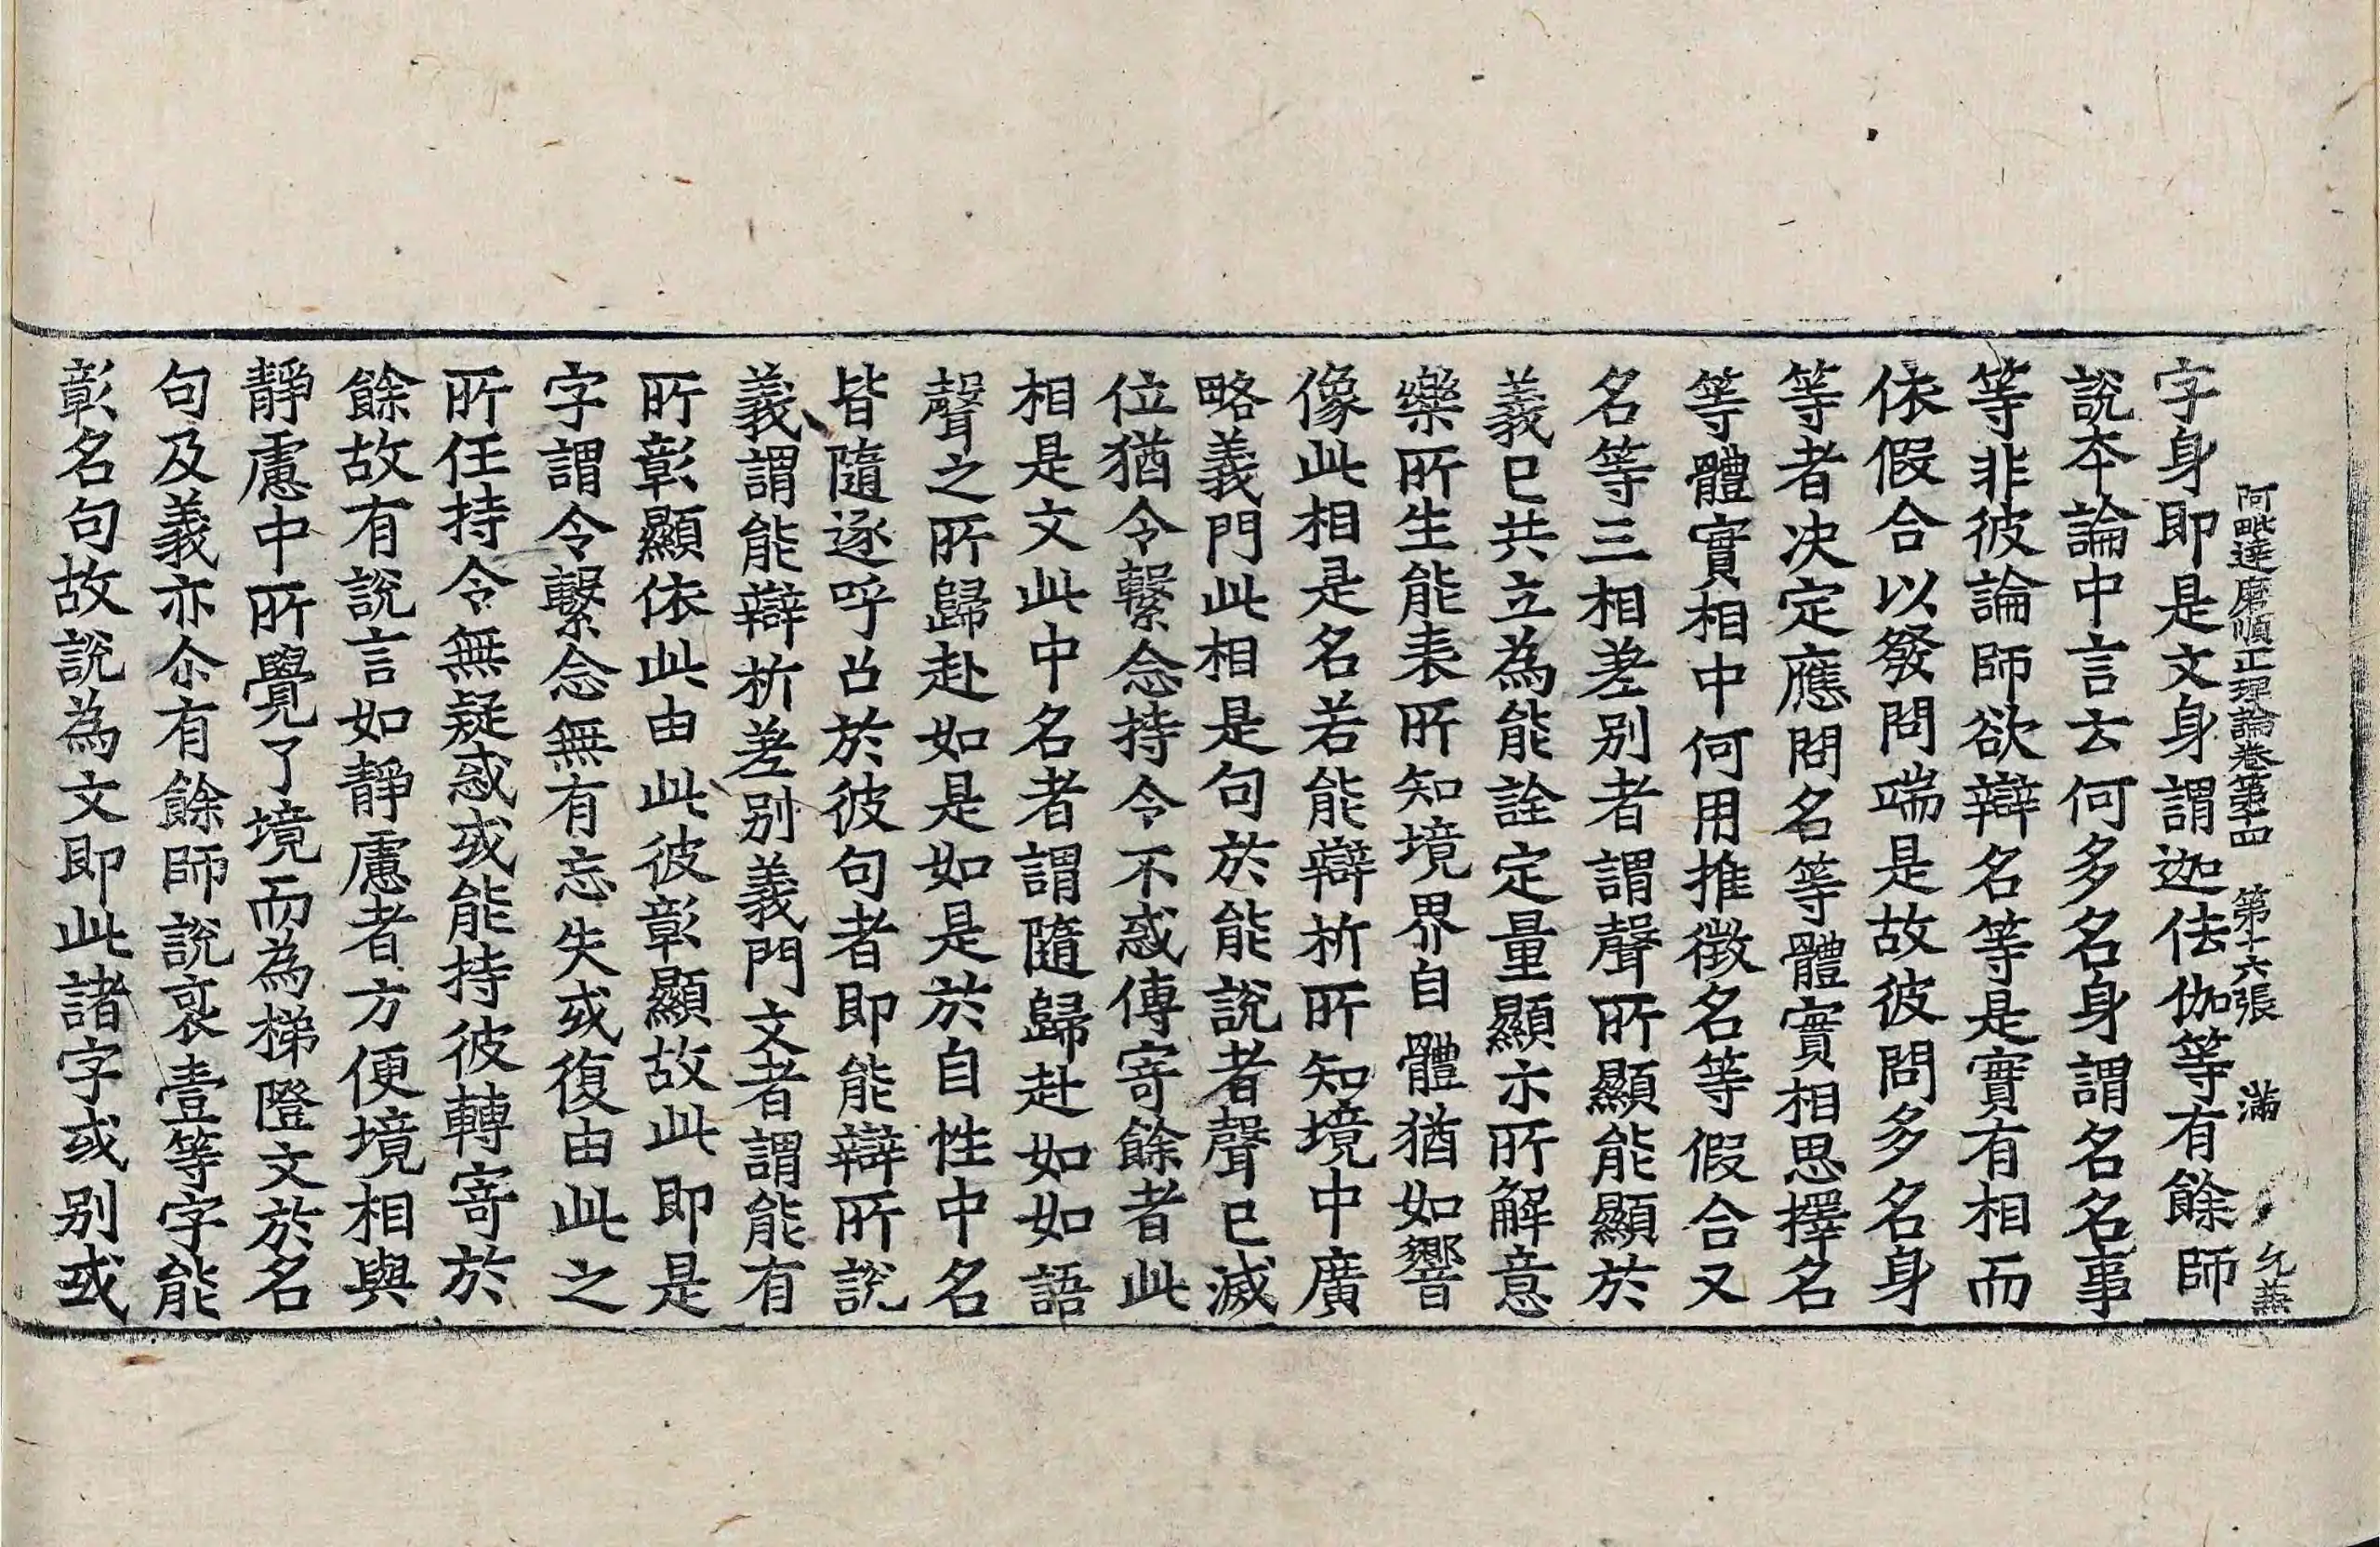 阿毗達磨順正理論卷第十四 第十六張 滿
字身即是文身謂迦佉伽等有餘師
說本論中言云何多名身謂名名事
等非彼論師欲辯名等是實有相而
依假合以發問端是故彼問多名身
等者決定應問名等體實相思擇名
等體實相中何用推徵名等假合又
名等三相差别者謂聲所顯能顯於
義已共立為能詮定量顯示所解意
樂所生能表所知境界自體猶如響
像此相是名若能辯析所知境中廣
略義門此相是句於能說者聲已滅
位猶令繫念持令不惑傳寄餘者此
相是文此中名者謂隨歸赴如如語
聲之所歸赴如是如是於自性中名
皆隨逐呼召於彼句者即能辯所說
義謂能辯析差别義門文者謂能有
所彰顯依此由此彼彰顯故此即是
字謂令繫念無有忘失或復由此之
所任持令無疑惑或能持彼轉寄於
餘故有說言如靜慮者方便境相與
靜慮中所覺了境而為梯隥文於名
句及義亦尒有餘師說裒壹等字能
彰名句故說為文即此諸字或别或